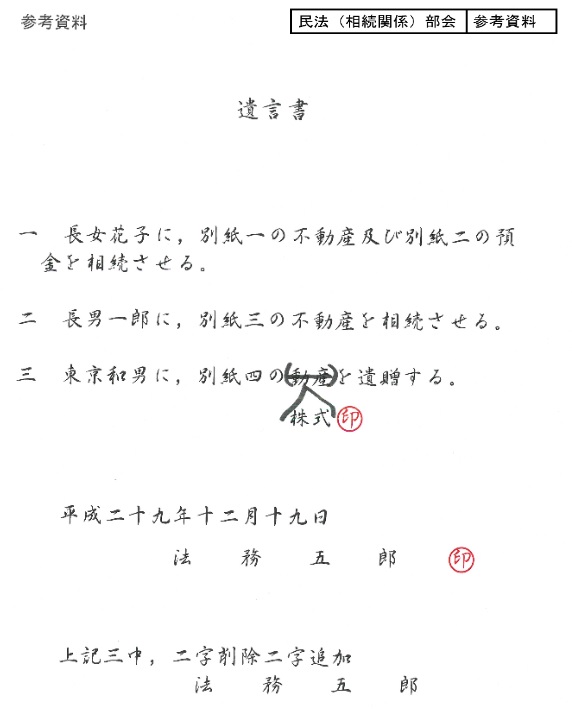 参考資料
民法（相続関係）部会 参考資料
遺言書
一　長女花子に，別紙一の不動産及び別紙二の預
金を相続させる。
二　長男一郎に，別紙三の不動産を相続させる。
三　東京和男に，別紙四の動産を遺贈する。
株式 印
平成二十九年十二月十九日
法　務　五　郎　印
上記三中，二字削除二字追加
法　務　五　郎